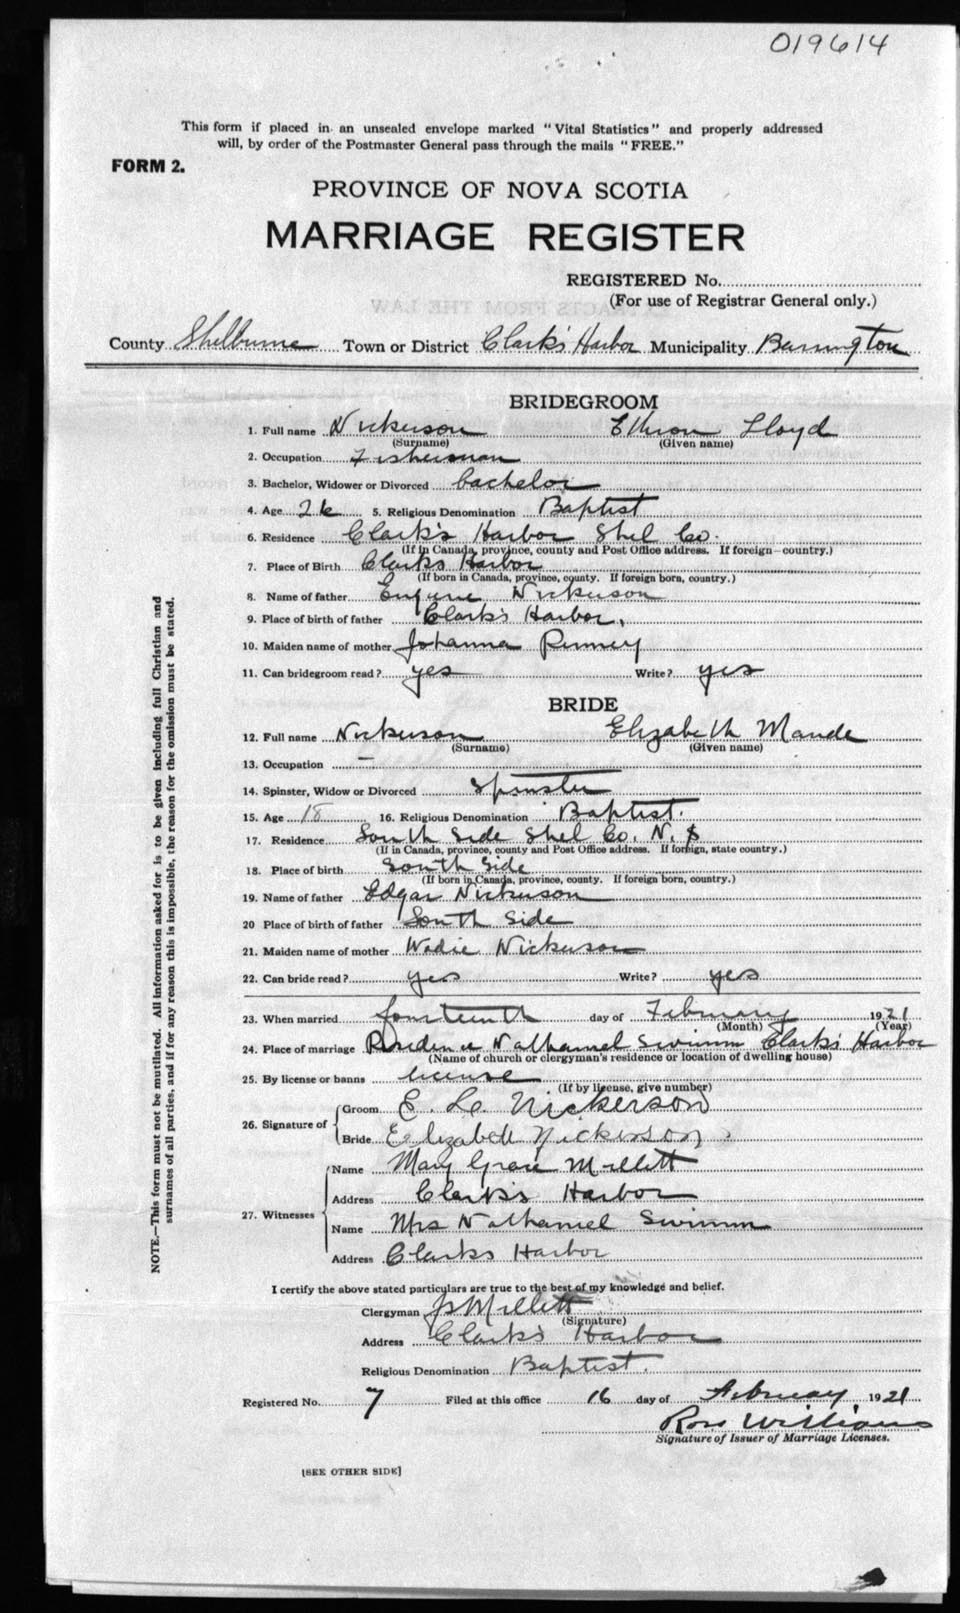 019614
This form if placed in an unsealed envelope marked "Vital Statistics" and properly addressed
will, by order of the Postmaster General pass through the mails "FREE."
FORM 2.
PROVINCE OF NOVA SCOTIA
MARRIAGE REGISTER
REGISTERED No.
(For use of Registrar General only.)
County Shelburne Town or District Clark's Harbor Municipality Barrington
BRIDEGROOM
1. Full name Nickerson Lloyd
(Surname) (Given name)
2. Occupation Fisherman
3. Bachelor, Widower or Divorced bachelor
4. Age 26 5. Religious Denomination Baptist
6. Residence Clark's Harbor Shel Co.
(If in Canada, province, county and Post Office address. If foreign—country.)
7. Place of Birth Clark's Harbor
(If born in Canada, province, county. If foreign born, country.)
8. Name of father Eugene Nickerson
9. Place of birth of father Clark's Harbor,
10. Maiden name of mother Johanna Penney
11. Can bridegroom read? yes Write? yes
BRIDE
12. Full name Nickerson Elizabeth Maude
(Surname) (Given name)
13. Occupation —
14. Spinster, Widow or Divorced Spinster
15. Age 18 16. Religious Denomination Baptist.
17. Residence South Side Shel Co. N. S
(If in Canada, province, county and Post Office address. If foreign, state country.)
18. Place of birth South Side
(If born in Canada, province, county. If foreign born, country.)
19. Name of father Edgar Nickerson
20 Place of birth of father South Side
21. Maiden name of mother Wadie Nickerson
22. Can bride read? yes Write? yes
23. When married fourteenth day of February 1921
(Month) (Year)
24. Place of marriage Residence Nathaniel Swimm Clark's Harbor
(Name of church or clergyman's residence or location of dwelling house)
25. By license or banns license
(If by license, give number)
26. Signature of
Groom E. L. Nickerson
Bride Elizabeth Nickerson
27. Witnesses
Name Mary Grace Millett
Address Clark's Harbor
Name Mrs Nathaniel Swimm
Address Clarks Harbor
I certify the above stated particulars are true to the best of my knowledge and belief.
Clergyman Millett
(Signature)
Address Clark's Harbor
Religious Denomination Baptist.
Registered No. 7 Filed at this office 16 day of February 1921
Ross Williams
Signature of Issuer of Marriage Licenses.
[SEE OTHER SIDE]
NOTE.—This form must not be mutilated. All information asked for is to be given including full Christian and
surnames of all parties, and if for any reason this is impossible, the reason for the omission must be stated.